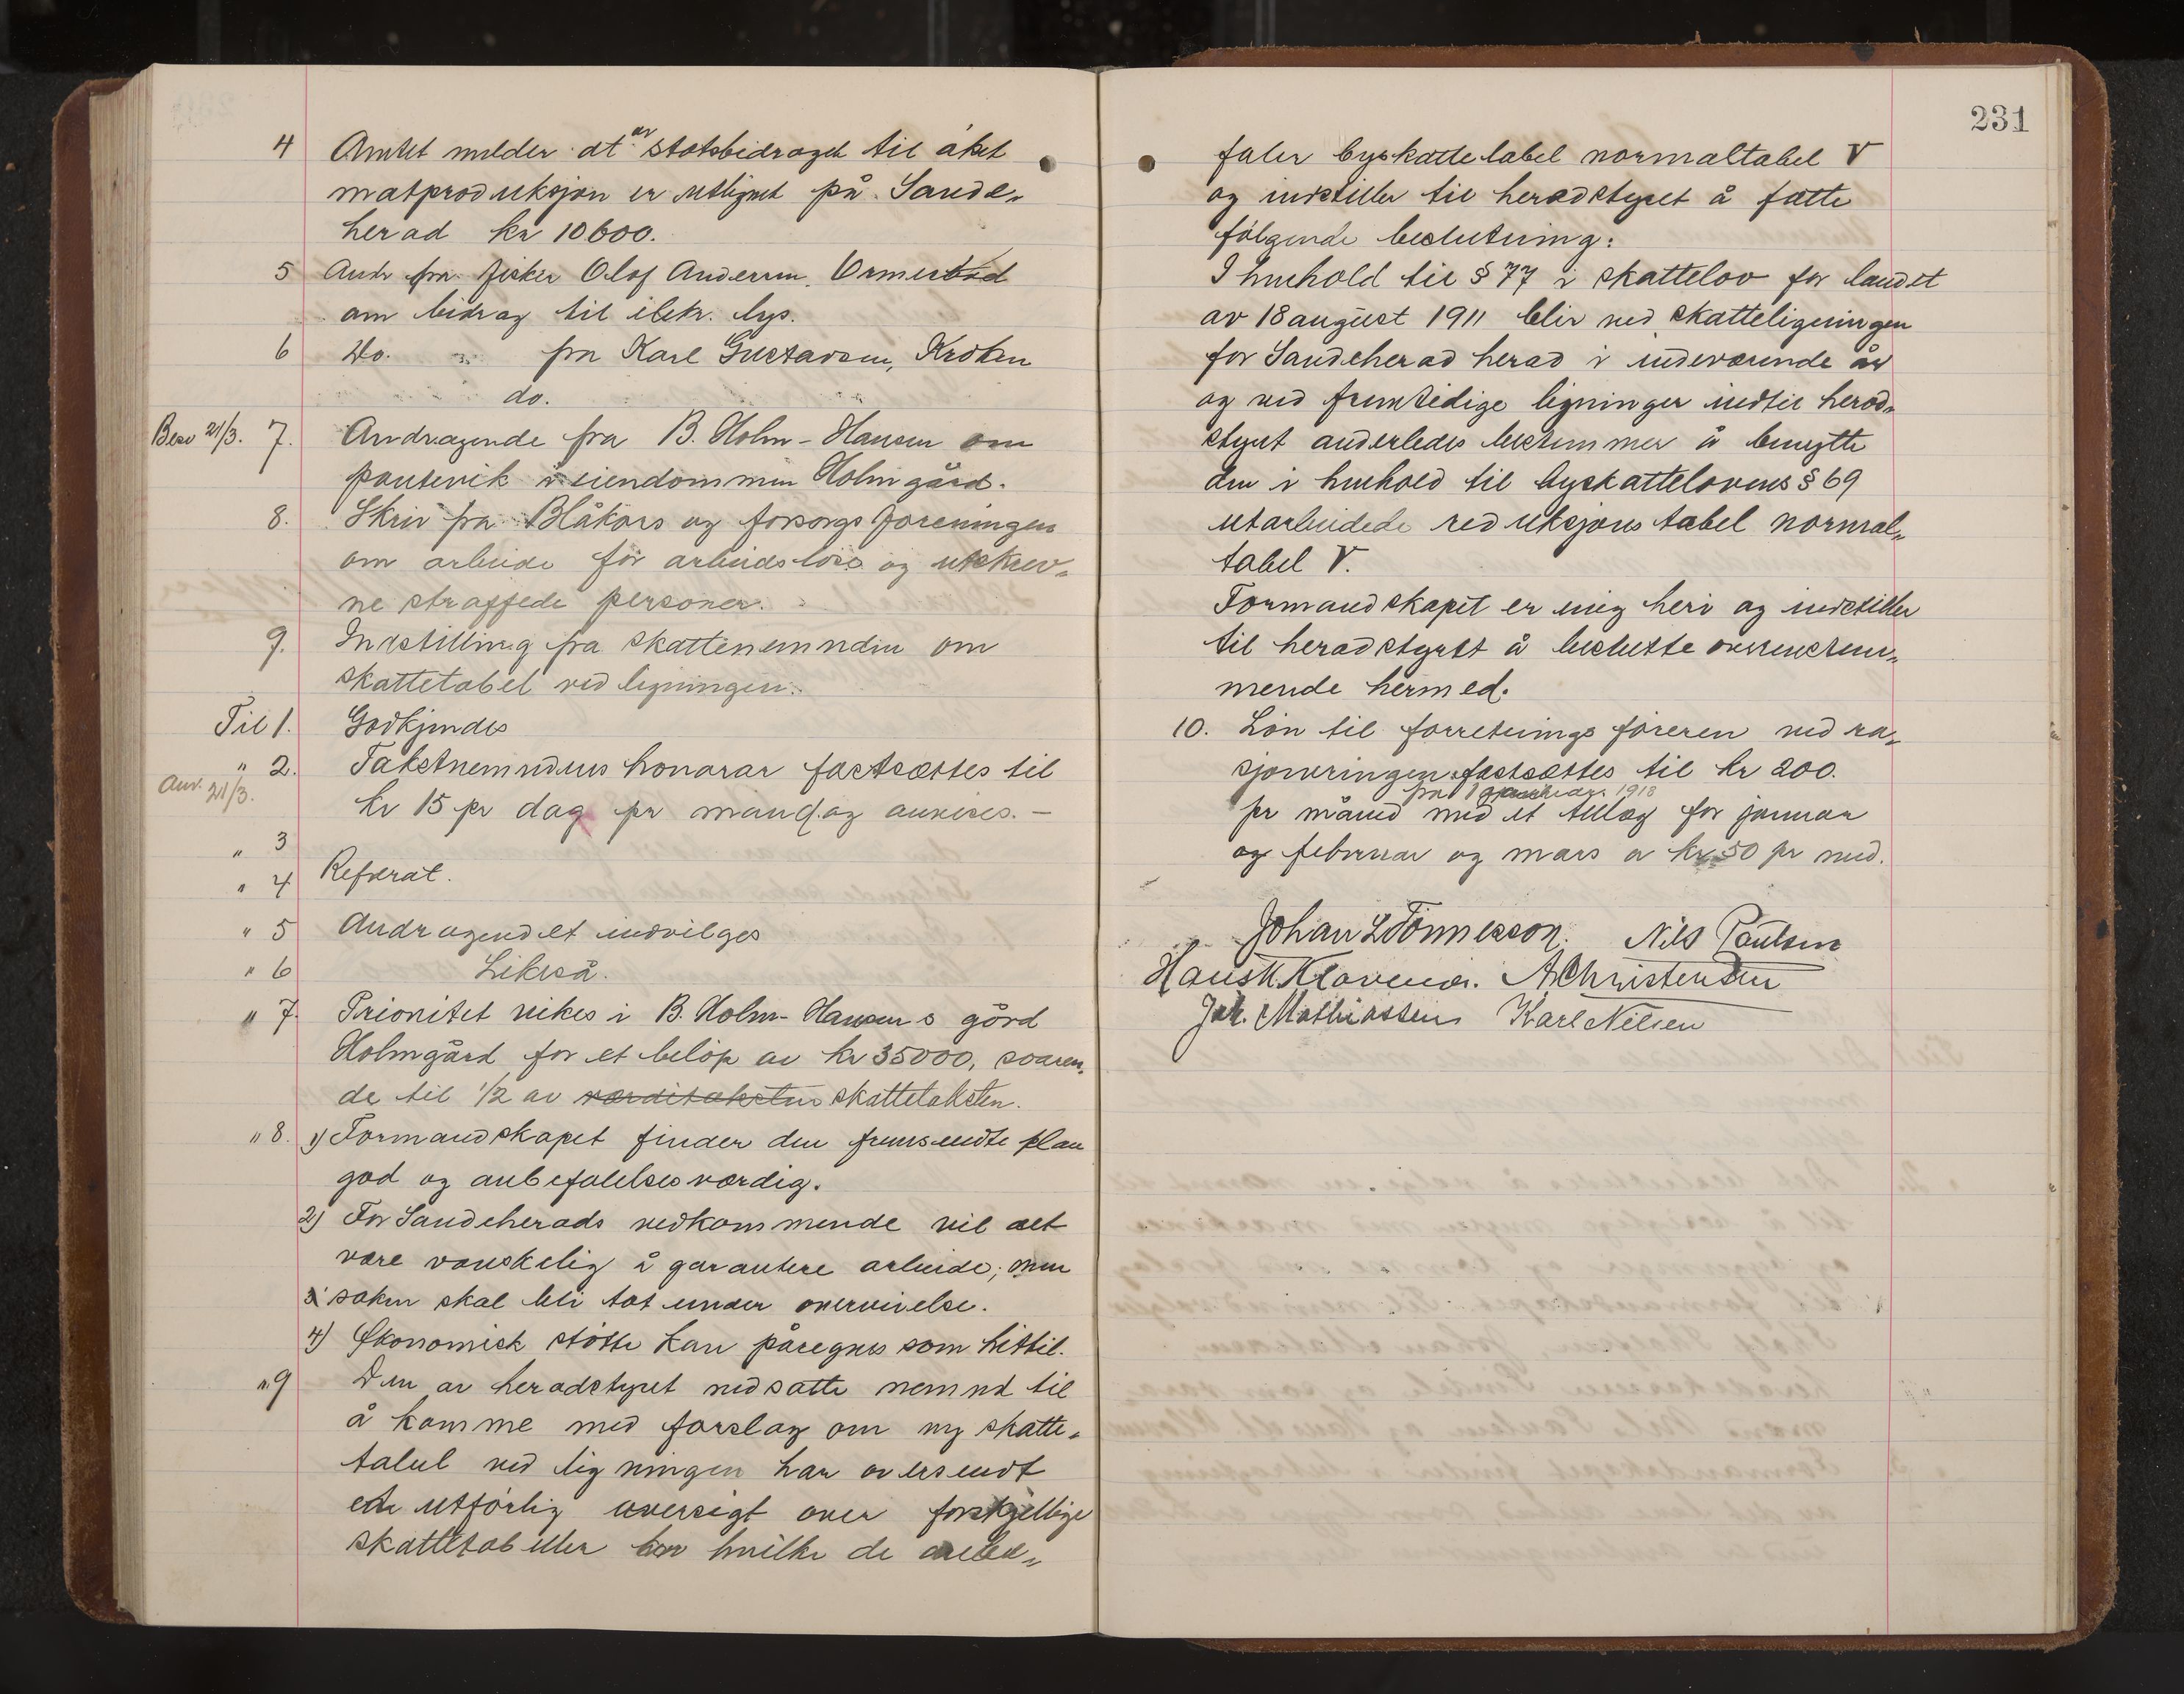 4 Amtet melder at av statsbidraget til øket
matproduksjon er utlignet på Sande„
herad kr 10600.
5 Andr fra fisker Olaf Andersen,
om bidrag til elektr. lys.
6 Do. „ fra Karl Gustavsen, Kroken
do.
Besv 21/3. 7. Andragende fra B. Holm-Hansen om
pantevik i eiendommen Holmgård.
8. Skriv fra Blåkors og forsorgsforeningen
om arbeide for arbeidsløse og utskrev„
ne straffede personer.
9. Indstilling fra skattenemnden om
skattetabel ved ligningen.
Til 1. Godkjendes
„ 2. Takstnemndens honorar fastsættes til
Anv. 21/3.
kr 15 pr dag pr mand og anvises. —
„ 3
„ 4 Referat.
„ 5 Andragendet indvilges
„ 6 Likeså.
„ 7. Prioritet vikes i B. Holm-Hansens gård
Holmgård for et beløp av kr 35000, svaren„
de til 1/2 av værditaksten skattetaksten.
„ 8. 1) Formandskapet finder den fremsendte plan
god og anbefalelsesværdig.
2) For Sandeherads vedkommende vil det
være vanskelig å garantere arbeide; men
3) saken skal bli tat under overveielse.
4) Økonomisk støtte kan påregnes som hittil.
„ 9 Den av heradstyret nedsatte nemnd til
å komme med forslag om ny skatte„
tabel ved ligningen har oversendt
en utførlig oversigt over forskjellige
skattetabeller hvilke de anbe„
231
faler byskattetabel normaltabel V
og indstiller til heradstyret å fatte
følgende beslutning:
I henhold til § 77 i skattelov for landet
av 18 august 1911 blir ved skatteligningen
for Sandeherad herad i indeværende år
og ved fremtidige ligninger indtil herad„
styret anderledes bestemmer å benytte
den i henhold til byskattelovens § 69
utarbeidede reduksjonstabel normal„
tabel V.
Formandskapet er enig heri og indstiller
til heradstyret å beslutte overenstem„
mende hermed.
10. Løn til forretningsføreren ved ra„
sjoneringen fastsættes til kr 200.
fra 1 januar 1918
pr måned med et tillæg for januar
og februar og mars a kr 50 pr md.
Johan L Tönnesson. Nils Paulsen
Hans K. Klavenes. A Christensen
Joh. Mathiassen Karl Nilsen